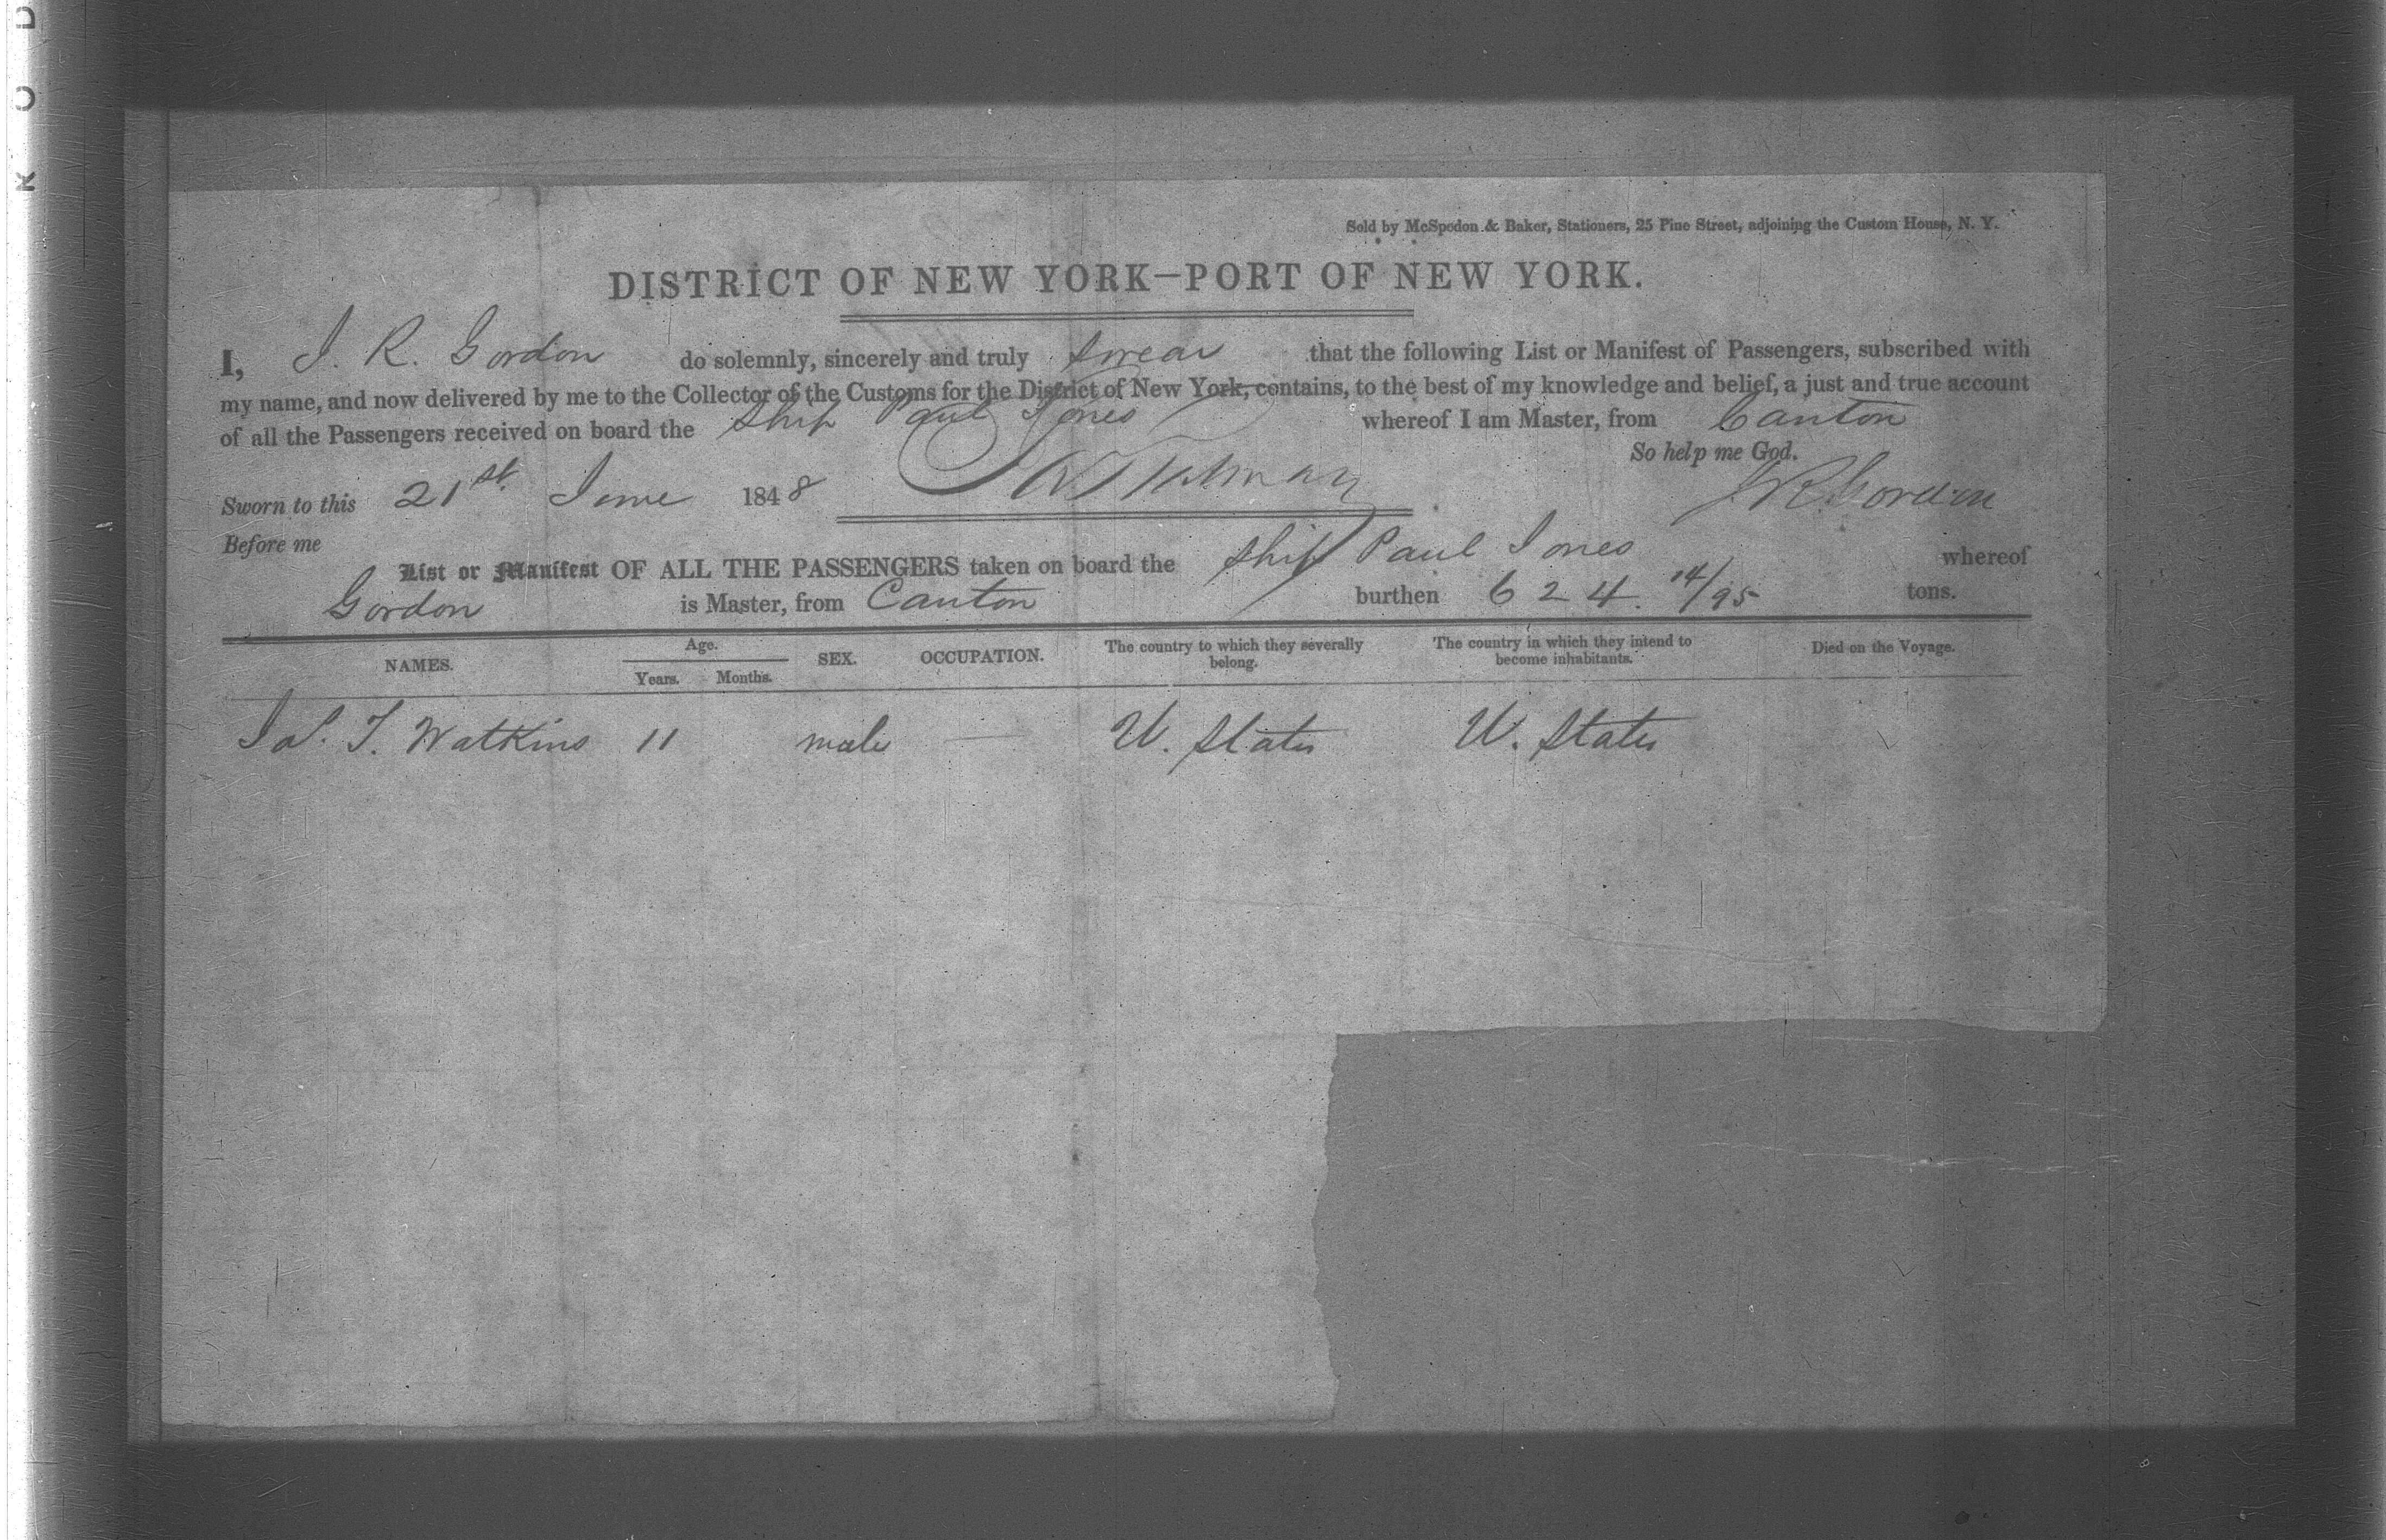 Sold by McSpedon & Baker, Stationers, 25 Pine Street, adjoining the Custom House, N. Y.
DISTRICT OF NEW YORK—PORT OF NEW YORK.
I, J. R. Gordon do solemnly, sincerely and truly swear that the following List or Manifest of Passengers, subscribed with
my name, and now delivered by me to the Collector of the Customs for the District of New York, contains, to the best of my knowledge and belief, a just and true account
of all the Passengers received on board the Ship Paul Jones whereof I am Master, from Canton
So help me God.
Sworn to this 21st June 1848 J R Gordon
Before me
List or Manifest OF ALL THE PASSENGERS taken on board the Ship Paul Jones whereof
Gordon is Master, from Canton burthen 624. 14/95 tons.
NAMES. Age. Years. Months. SEX. OCCUPATION. The country to which they severally belong. The country in which they intend to become inhabitants. Died on the Voyage.
Jas. T. Watkins 11 male — U. States U. States